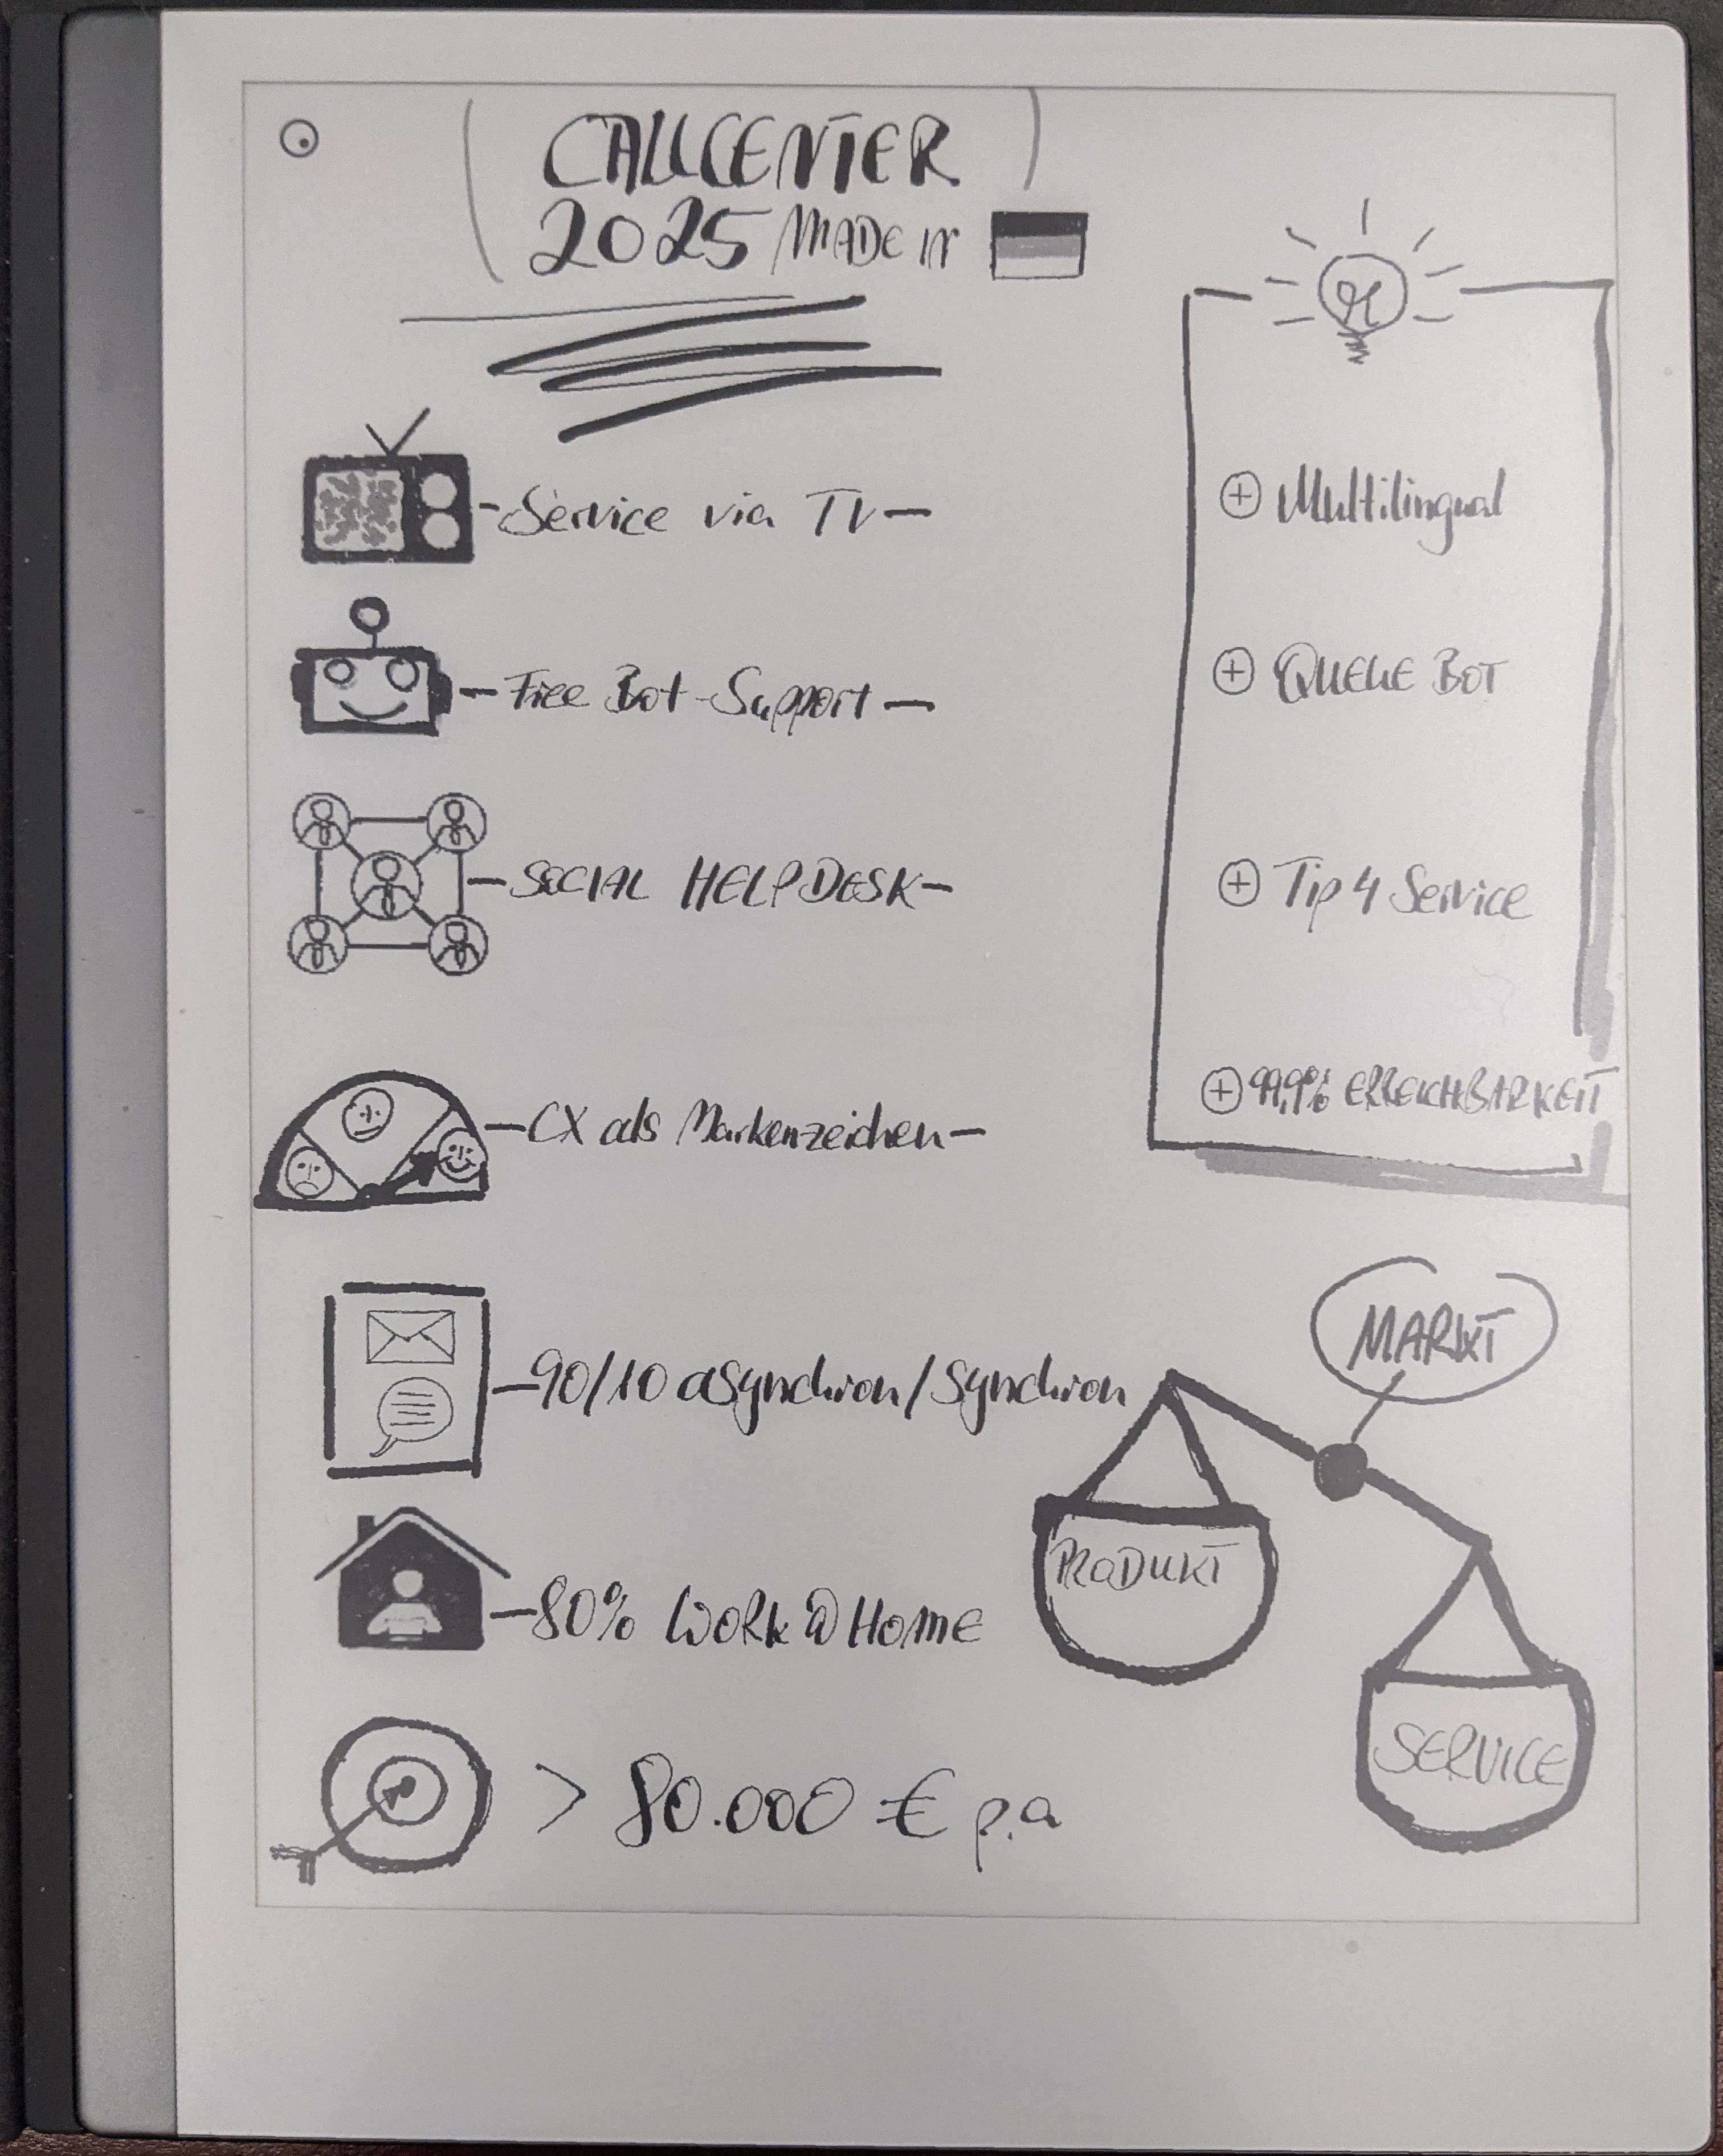 CALLCENTER
2025 MADE IN
Service via TV
Free Bot-Support
SOCIAL HELPDESK
CX als Markenzeichen
90/10 asynchron/Synchron
80% WORK@HOME
> 80.000 € p.a
⊕ Multilingual
⊕ QUEUE BOT
⊕ Tip 4 Service
⊕ 99,9% ERREICHBARKEIT
MARKT
PRODUKT
SERVICE